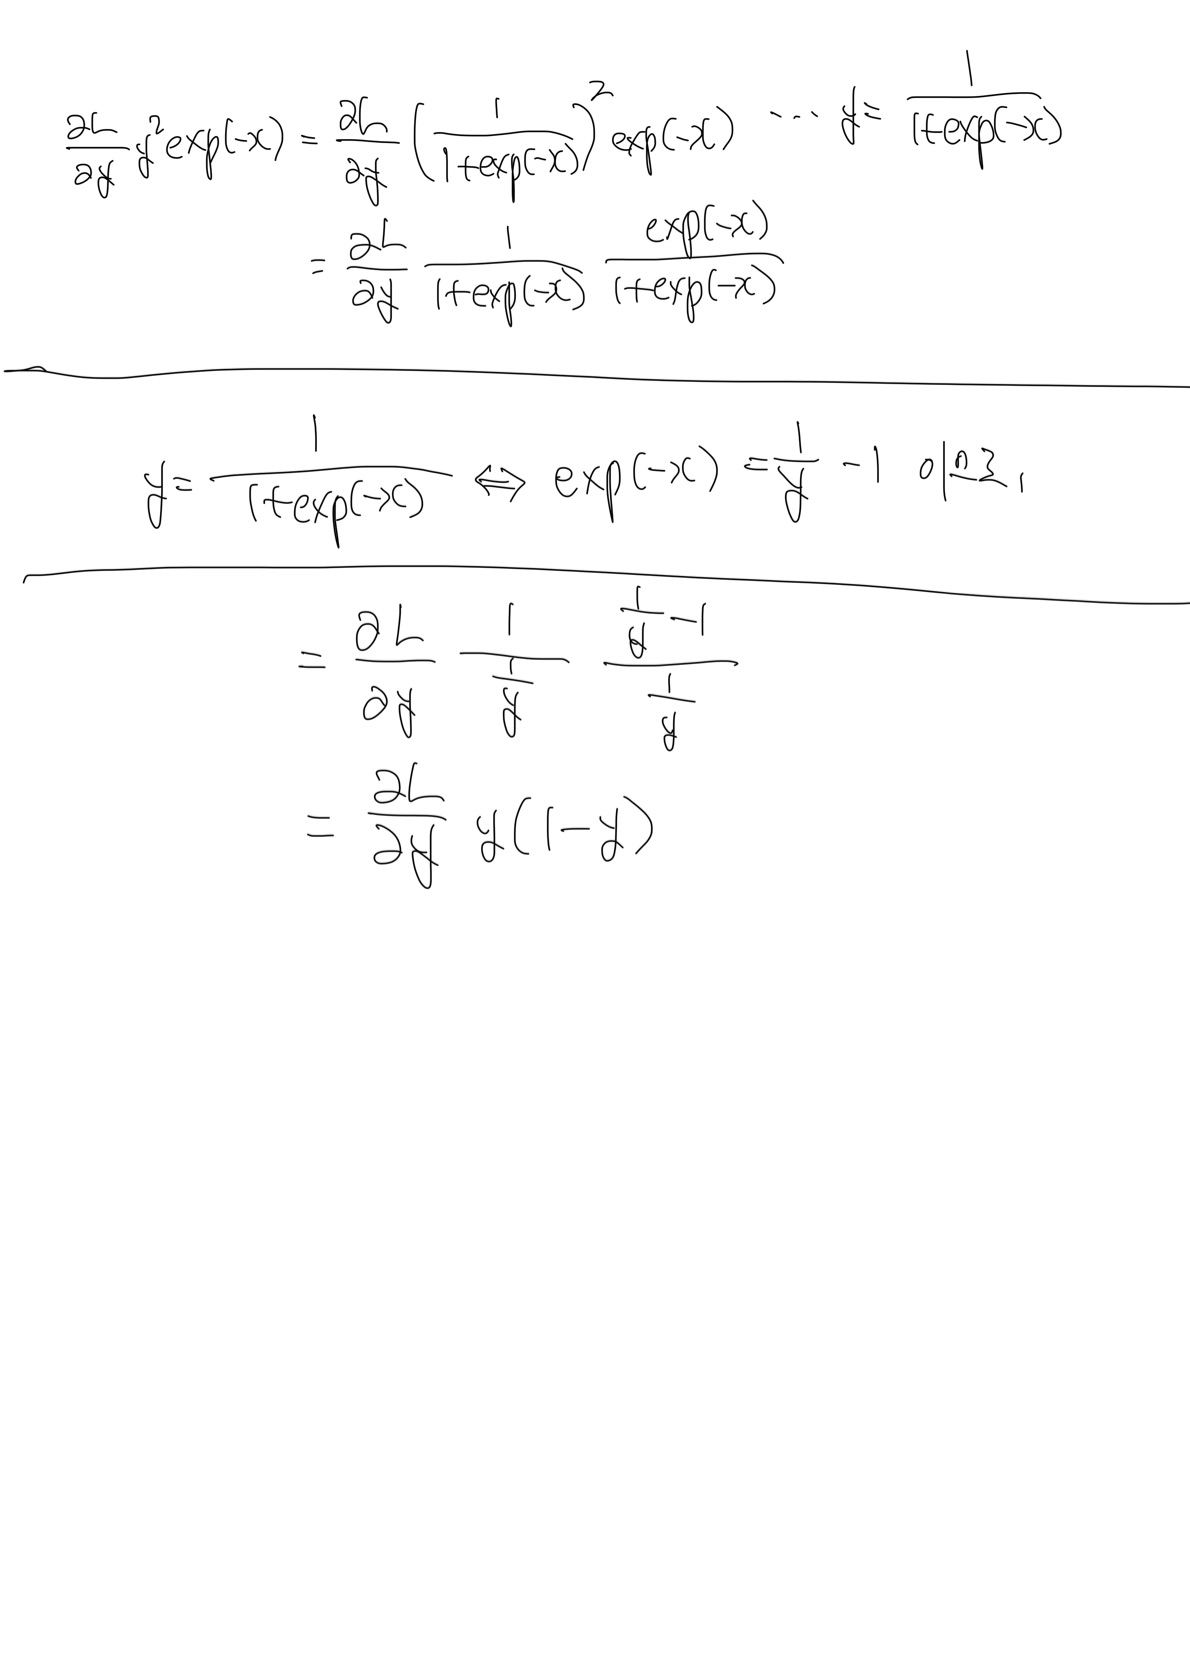 ∂L/∂y y² exp(-x) = ∂L/∂y (1/(1+exp(-x)))² exp(-x) ... y = 1/(1+exp(-x))
= ∂L/∂y 1/(1+exp(-x)) exp(-x)/(1+exp(-x))
y = 1/(1+exp(-x)) ⇔ exp(-x) = 1/y - 1 이므로,
= ∂L/∂y 1/(1/y) (1/y - 1)/(1/y)
= ∂L/∂y y(1-y)